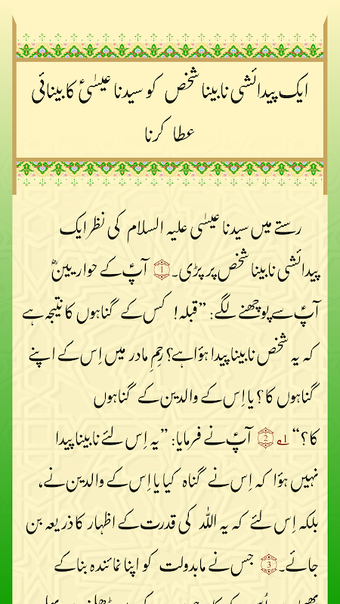 ایک پیدائشی نابینا شخص کو سیدنا عیسٰیؑ کا بینائی
عطا کرنا
رستے میں سیدنا عیسٰی علیہ السلام کی نظر ایک
پیدائشی نابینا شخص پر پڑی۔ 1 آپؑ کے حواریینؓ
آپؑ سے پوچھنے لگے: ”قبلہ! کس کے گناہوں کا نتیجہ ہے
کہ یہ شخص نابینا پیدا ہؤا ہے؟ رحمِ مادر میں اِس کے اپنے
گناہوں کا؟ یا اِس کے والدین کے گناہوں
کا؟“ 2 آپؑ نے فرمایا: ”یہ اِس لئے نابینا پیدا
نہیں ہؤا کہ اِس نے گناہ کیا یا اِس کے والدین نے،
بلکہ اِس لئے کہ یہ اللہ کی قدرت کے اظہار کا ذریعہ بن
جائے۔ 3 جس نے مابدولت کو اپنا نمائندہ بنا کے